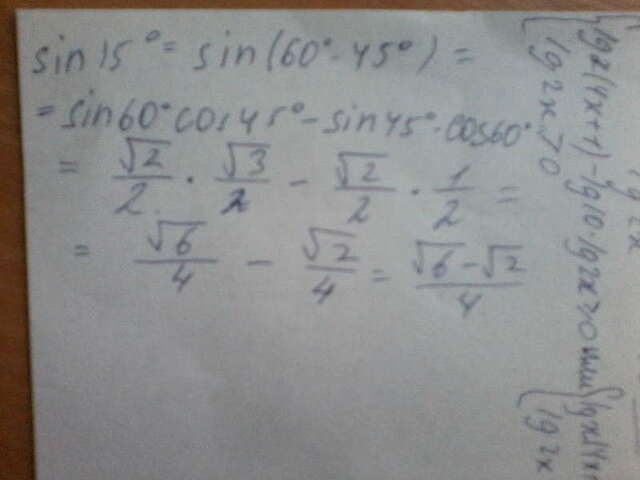 sin 15° = sin(60° - 45°) =
= sin60° cos45° - sin45° · cos60°
= √2/2 · √3/2 - √2/2 · 1/2 =
= √6/4 - √2/4 = (√6 - √2)/4
lg 2x
lg 2x > 0
lg 2x